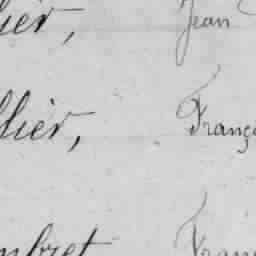 lier, Jean
llier, Franç
mbret Franç